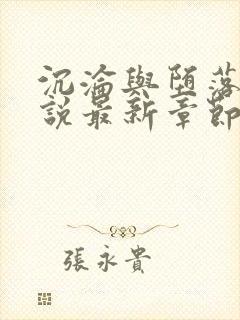 沉淪與墮落
說最新章節
張永貴